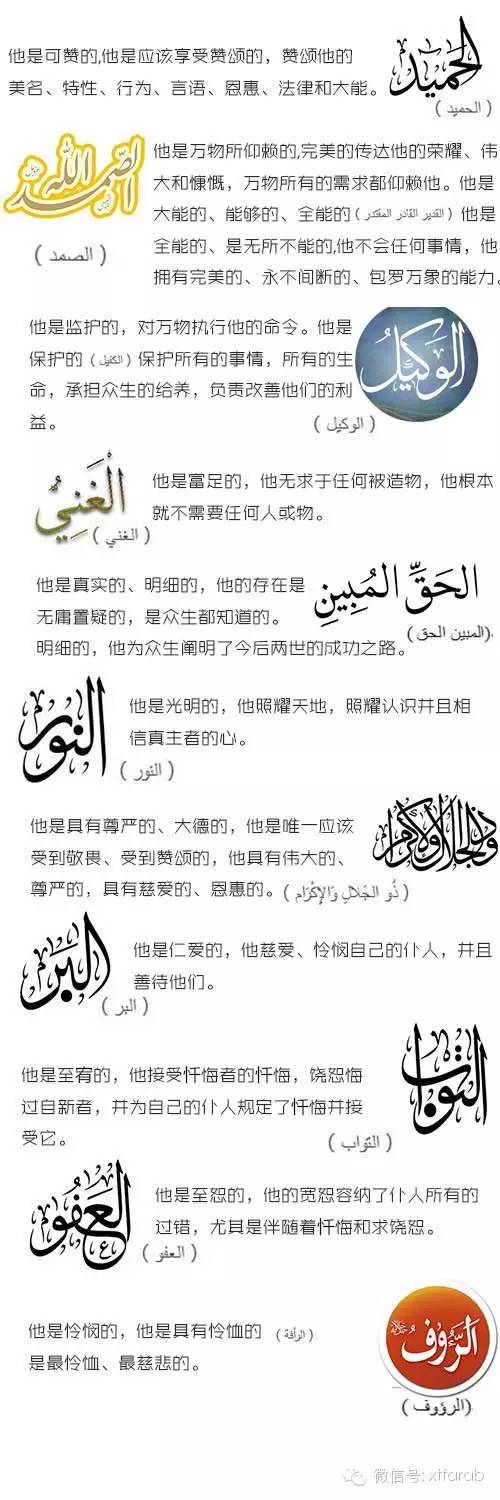 他是可赞的,他是应该享受赞颂的，赞颂他的
美名、特性、行为、言语、恩惠、法律和大能。
الحميد
( الحميد )
الله الصمد
他是万物所仰赖的,完美的传达他的荣耀、伟
大和慷慨，万物所有的需求都仰赖他。他是
大能的、能够的、全能的(القدير القادر المقتدر)他是
全能的、是无所不能的,他不会任何事情，他
拥有完美的、永不间断的、包罗万象的能力。
( الصمد )
他是监护的，对万物执行他的命令。他是
保护的(الكفيل)保护所有的事情，所有的生
命，承担众生的给养，负责改善他们的利
益。
الوكيل
( الوكيل )
الْغَنِيُّ
他是富足的，他无求于任何被造物，他根本
就不需要任何人或物。
( الغني )
他是真实的、明细的，他的存在是
无庸置疑的，是众生都知道的。
明细的，他为众生阐明了今后两世的成功之路。
الحَقِّ المُبِينِ
(المبين الحق).
النور
他是光明的，他照耀天地，照耀认识并且相
信真主者的心。
( النور )
他是具有尊严的、大德的，他是唯一应该
受到敬畏、受到赞颂的，他具有伟大的、
尊严的，具有慈爱的、恩惠的。
ذو الجلال والإكرام
( ذُو الجَلالِ وَالإِكْرَامِ )
البر
他是仁爱的，他慈爱、怜悯自己的仆人，并且
善待他们。
( البر )
他是至宥的，他接受忏悔者的忏悔，饶恕悔
过自新者，并为自己的仆人规定了忏悔并接
受它。
التواب
( التواب )
العفو
他是至恕的，他的宽恕容纳了仆人所有的
过错，尤其是伴随着忏悔和求饶恕。
( العفو )
他是怜悯的，他是具有怜恤的 (الرأفة)
是最怜恤、最慈悲的。
الرَّءُوف
( الرؤوف).
微信号: xtfarab